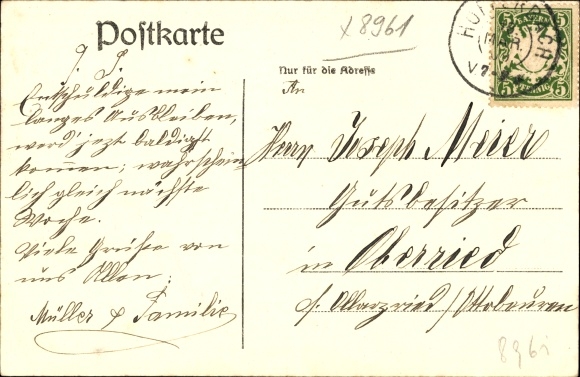 Postkarte
x 8961
Nur für die Adresse
An
L. J.
Entschuldige mein
langes Ausbleiben,
werd' jezt baldigst
kommen; wahrschein-
lich gleich nächste
Woche.
Viele Grüße von
uns Allen.
Müller & Familie
Herrn Joseph Meier
Gutsbesitzer
in Oberried
Ottobeuren
5 BAYERN 5
5 PFENNIG 5
MÄR
8961